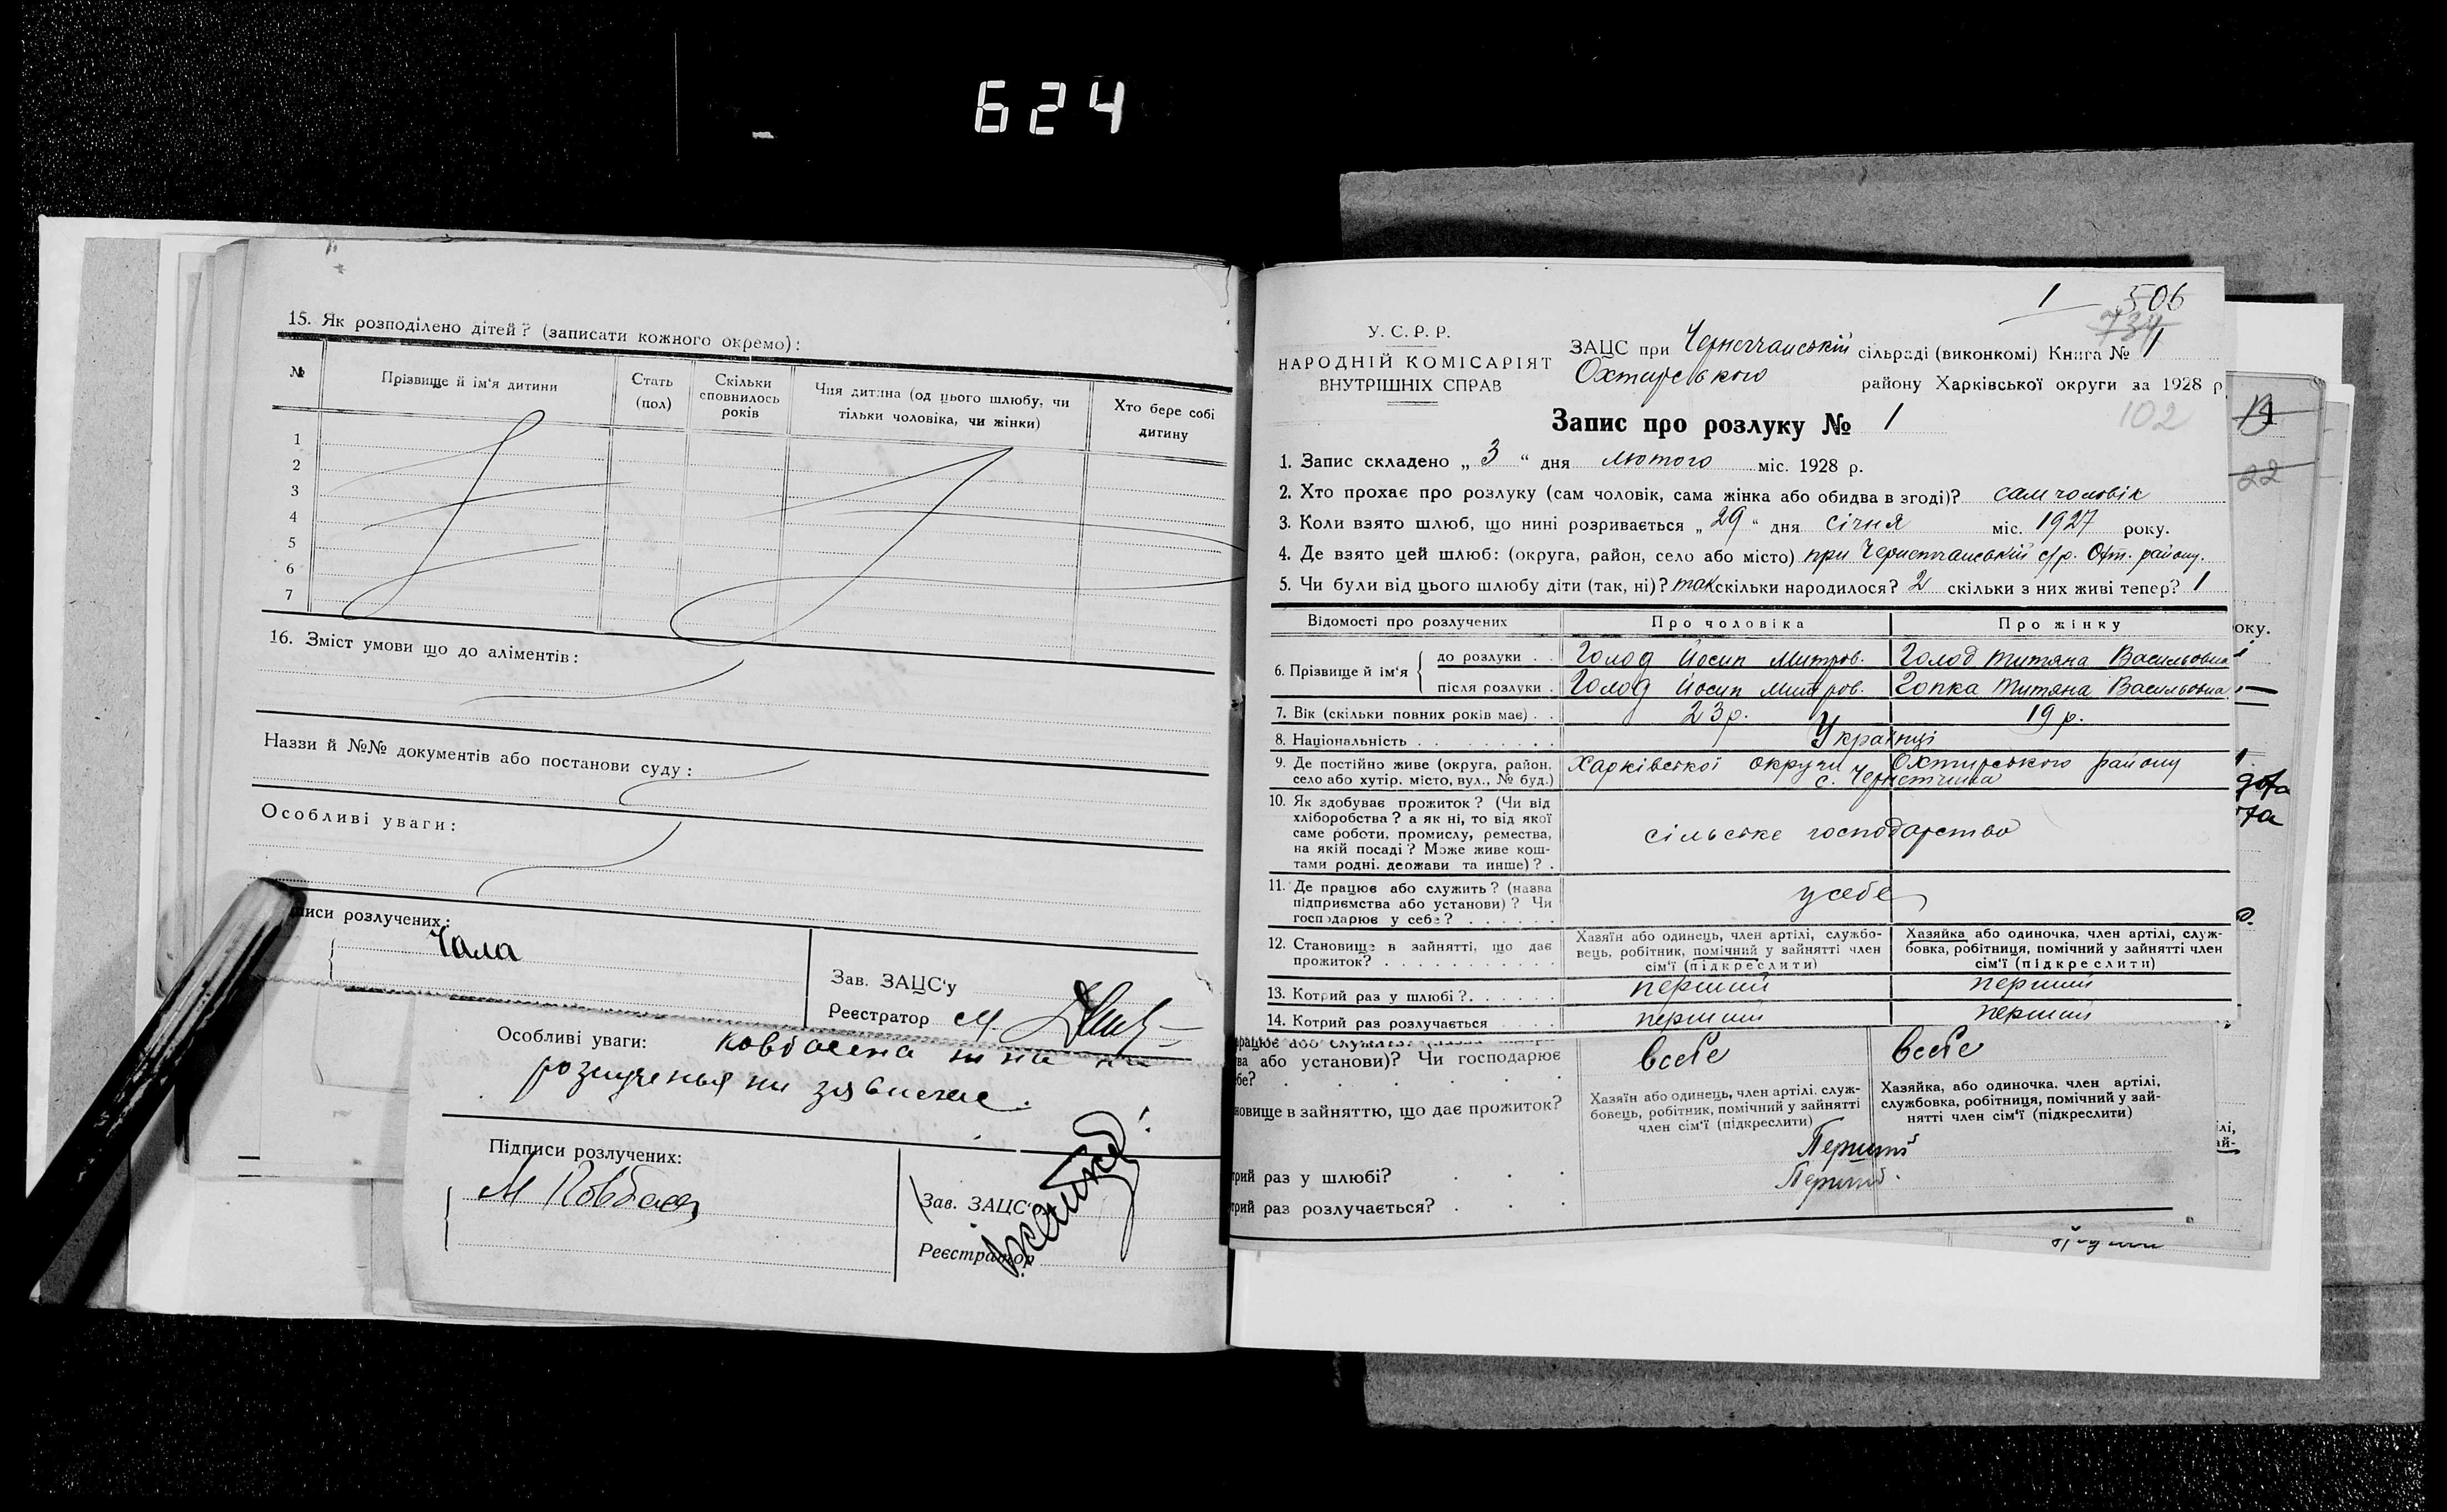 624
15. Як розподілено дітей? (записати кожного окремо):
№ Прізвище й ім'я дитини Стать (пол) Скільки сповнилось років Чия дитина (од цього шлюбу, чи тільки чоловіка, чи жінки) Хто бере собі дитину
1
2
3
4
5
6
7
16. Зміст умови що до аліментів:
Назви й №№ документів або постанови суду:
Особливі уваги:
писи розлучених:
Чала
Зав. ЗАЦС'у
Реєстратор М.
Особливі уваги: Ковбасена
розлученья ни
Підписи розлучених:
М Ковбаса
Зав. ЗАЦС'
Реєстратор
1 506
734
У.С.Р.Р.
НАРОДНІЙ КОМІСАРІЯТ
ВНУТРІШНІХ СПРАВ
ЗАЦС при Чернеччанській сільраді (виконкомі) Книга № 1
Охтирського району Харківської округи за 1928 р
Запис про розлуку № 1
102
1. Запис складено „ 3 “ дня лютого міс. 1928 р.
2. Хто прохає про розлуку (сам чоловік, сама жінка або обидва в згоді)? сам чоловік
3. Коли взято шлюб, що нині розривається „ 29 “ дня січня міс. 1927 року.
4. Де взято цей шлюб: (округа, район, село або місто) при Чернетчанській с/р. Охт. району.
5. Чи були від цього шлюбу діти (так, ні)? так скільки народилося? 2 скільки з них живі тепер? 1
Відомості про розлучених Про чоловіка Про жінку
6. Прізвище й ім'я
до розлуки . . Голод Йосип Митров. Голод Титяна Васильовна
після розлуки . Голод Йосип Митров. Гопка Титяна Васильовна
7. Вік (скільки повних років має) . . 23 р. 19 р.
8. Національність . . . . . . . . . Українці
9. Де постійно живе (округа, район, село або хутір, місто, вул., № буд.) Харківської округи Охтирського району
с. Чернетчина
10. Як здобуває прожиток? (Чи від
хліборобства? а як ні, то від якої
саме роботи, промислу, ремества,
на якій посаді? Може живе кош-
тами родні, держави та инше)? .
сільське господарство
11. Де працює або служить? (назва
підприємства або установи)? Чи
господарює у себе? . . . . . .
у себе
12. Становище в зайнятті, що дає
прожиток? . . . . . . . . . .
Хазяїн або одинець, член артілі, службо-
вець, робітник, помічний у зайнятті член
сім'ї (підкреслити)
Хазяйка або одиночка, член артілі, служ-
бовка, робітниця, помічний у зайнятті член
сім'ї (підкреслити)
13. Котрий раз у шлюбі?. . . . . . перший перший
14. Котрий раз розлучається . . . . перший перший
ва або установи)? Чи господарює
бе? . . . . . .
всебе всебе
новище в зайняттю, що дає прожиток?
Хазяїн або одинець, член артілі, служ-
бовець, робітник, помічний у зайнятті
член сім'ї (підкреслити)
Хазяйка, або одиночка, член артілі,
службовка, робітниця, помічний у зай-
нятті член сім'ї (підкреслити)
трий раз у шлюбі? . . . Перший
трий раз розлучається? . . . Перший
22
оку.